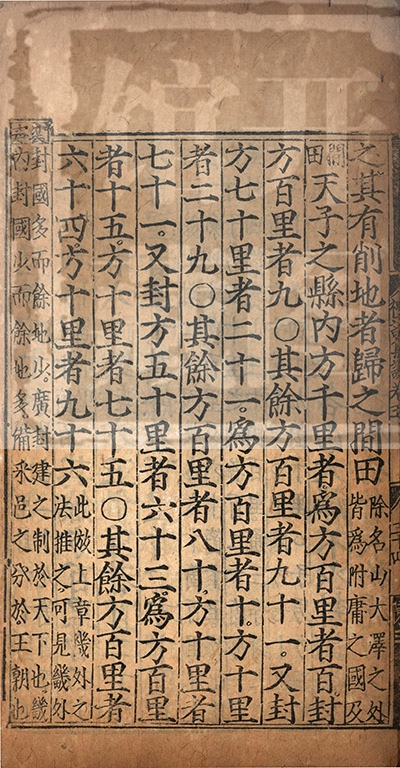 之其有削地者歸之間田
除名山大澤之外
皆爲附庸之國及
間
田
天子之縣内方千里者爲方百里者百封
方百里者九〇其餘方百里者九十一。又封
方七十里者二十一。爲方百里者十。方十里
者二十九〇其餘方百里者八十。方十里者
七十一。又封方五十里者六十三。爲方百里
者十五。方十里者七十五〇其餘方百里者
六十四。方十里者九十六
此倣上章畿外之
法推之。可見畿外
封國多而餘地少。廣封建之制於天下也。畿
内封國少而餘地多。備采邑之分於王朝也